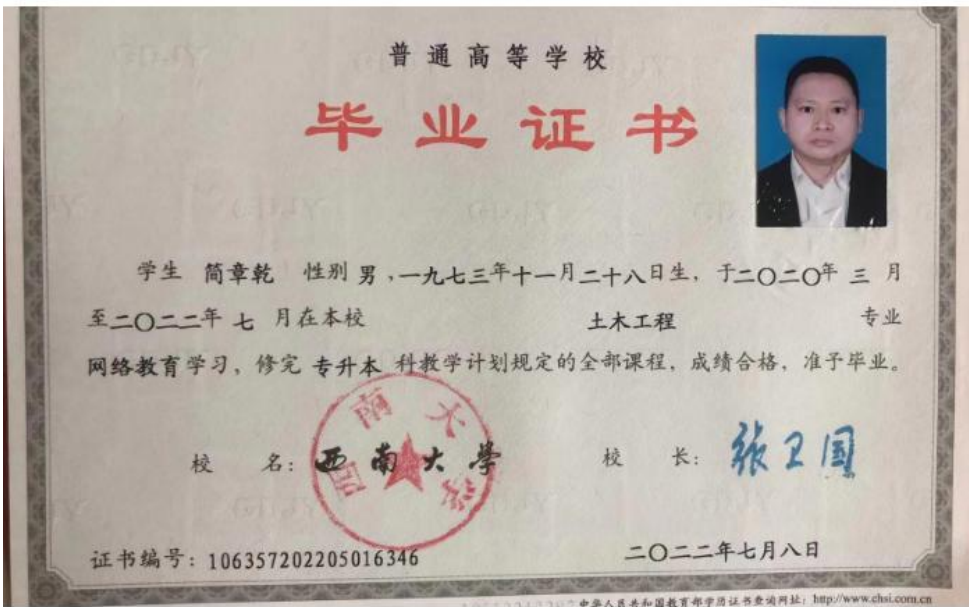 普通高等学校
毕业证书
学生 简章乾 性别 男 ，一九七三年十一月二十八日生，于二〇二〇年 三 月
至二〇二二年 七 月在本校 土木工程 专业
网络教育学习，修完 专升本 科教学计划规定的全部课程，成绩合格，准予毕业。
校 名：西南大學 校 长：张卫国
西南大学
证书编号：106357202205016346 二〇二二年七月八日
中华人民共和国教育部学历证书查询网址：http://www.chsi.com.cn